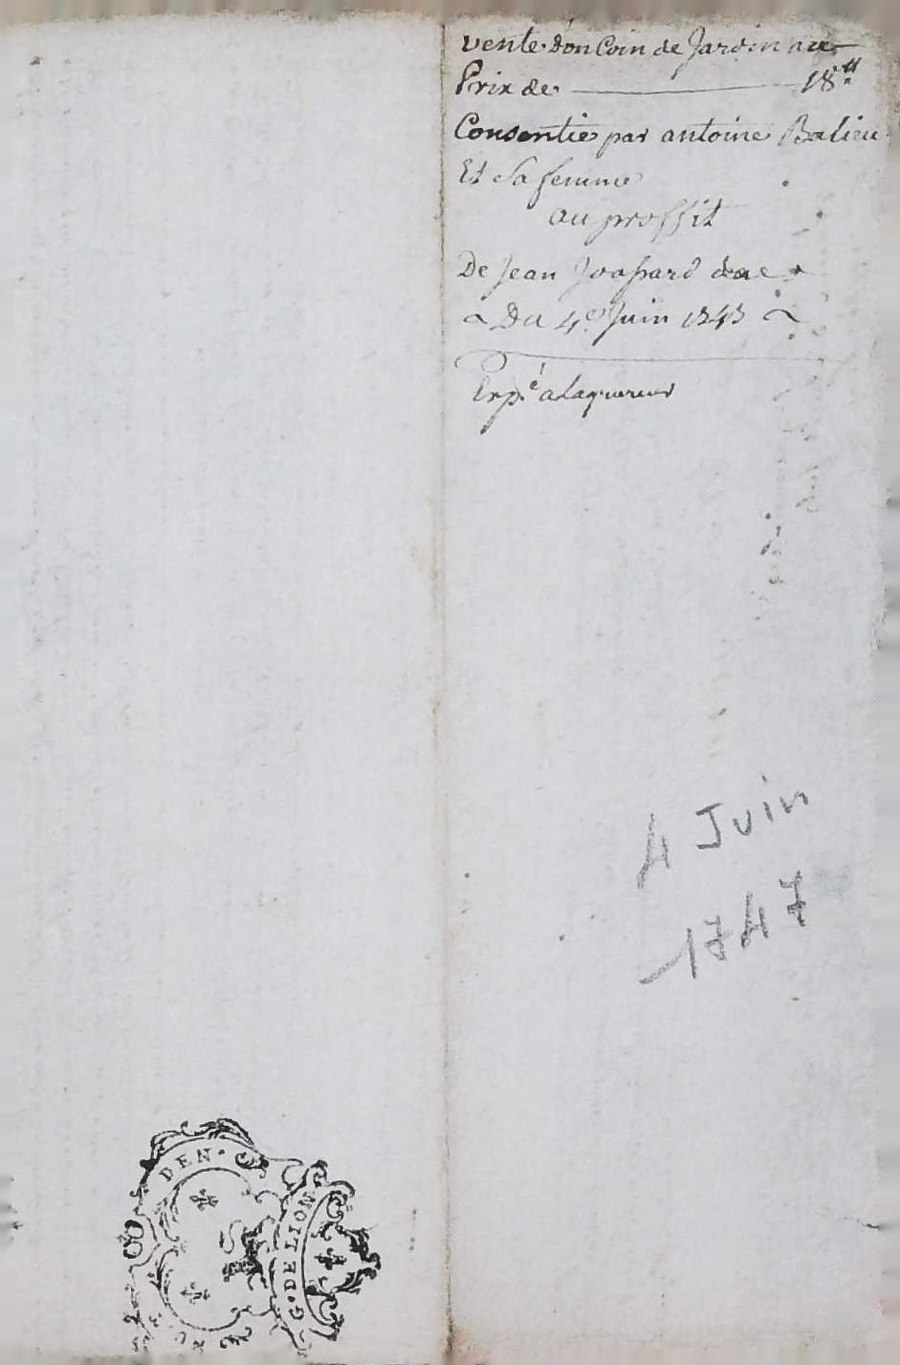 vente d'un Coin de Jardin au
Prix de 18 ₶
Consentie par antoine Balieu
Et Sa femme
au proffit
De Jean
Du 4e Juin 1747
Expé a Laquereur
4 Juin
1747
DEN.
G. DE LION